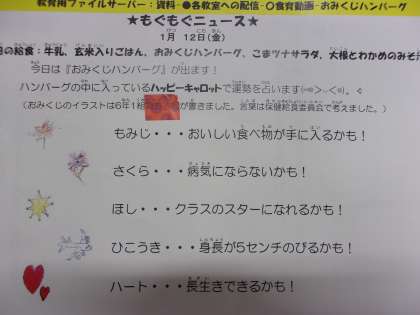 教育用ファイルサーバー：資料-●各教室への配信-〇食育動画-おみくじハンバーグ
★もぐもぐニュース★
1月12日(金)
の給食：牛乳、玄米入りごはん、おみくじハンバーグ、こまツナサラダ、大根とわかめのみそ
今日は『おみくじハンバーグ』が出ます！
ハンバーグの中に入っているハッピーキャロットで運勢を占います
(おみくじのイラストは6年1組 が書きました。 は保健給食委員会で考えました。)
もみじ・・・おいしい食べ物が手に入るかも！
さくら・・・病気にならないかも！
ほし・・・クラスのスターになれるかも！
ひこうき・・・身長が5センチのびるかも！
ハート・・・長生きできるかも！